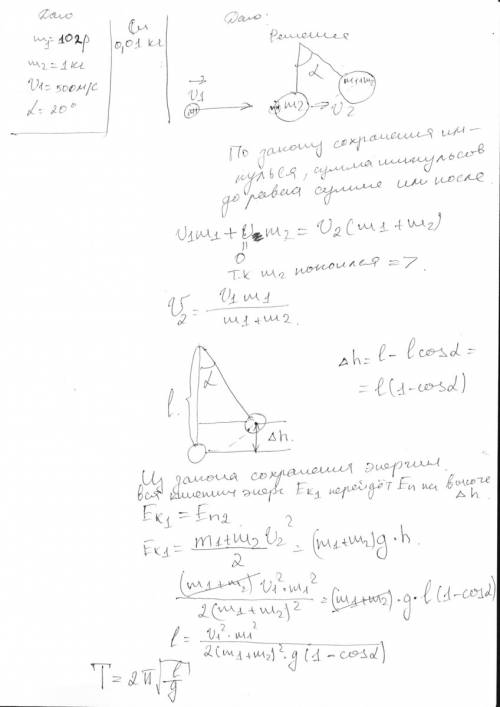 Дано
m1 = 10гр
m2 = 1кг
V1 = 500м/с
α = 20°
Си
0,01 кг
Дано:
Решение
V1
m1
α
m1 m2
V2
m1+m2
По закону сохранения им-
пульса, сумма импульсов
до равна сумме им после.
V1m1 + U m2 = V2(m1+m2)
=
0
Т.к m2 покоился =>
V2 = V1 m1 / m1+m2
l
α
Δh
Δh = l - l cosα =
= l(1-cosα)
Из закона сохранения энергии
вся энерг Eк1 перейдёт Eп на высоте Δh
Eк1 = Eп2
Eк1 = m1+m2 V2² / 2 = (m1+m2)g·h
(m1+m2) V1²·m1² / 2(m1+m2)² = (m1+m2)·g·l(1-cosα)
l = V1²·m1² / 2(m1+m2)²·g(1-cosα)
T = 2π√l/g